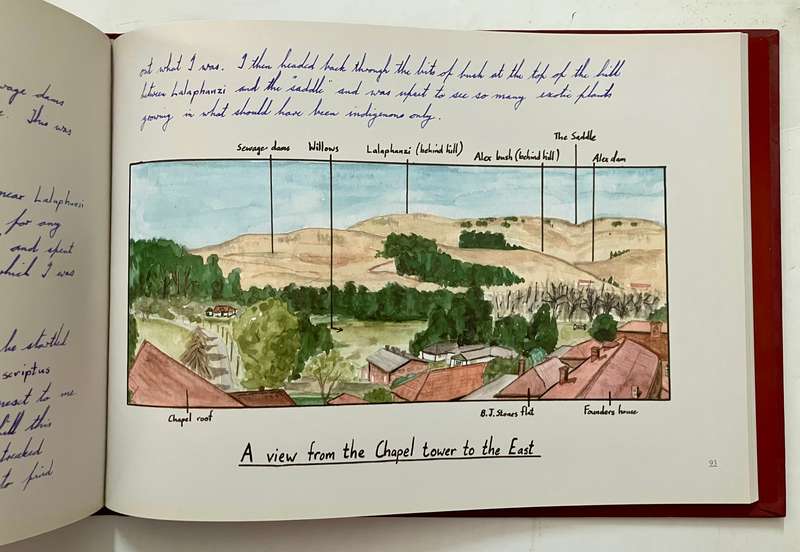 wage dams
This was
near Lalaphanzi
for any
and spent
which I was
he startled
scriptus
next to me
this
tracked
to find
out what I was. I then headed back through the bits of bush at the top of the hill
between Lalaphanzi and the "saddle" and was upset to see so many exotic plants
growing in what should have been indigenous only.
The Saddle
Sewage dams Willows Lalaphanzi (behind hill) Alex bush (behind hill) Alex dam
Chapel roof B.J. Stones flat Founders house
A view from the Chapel tower to the East
93